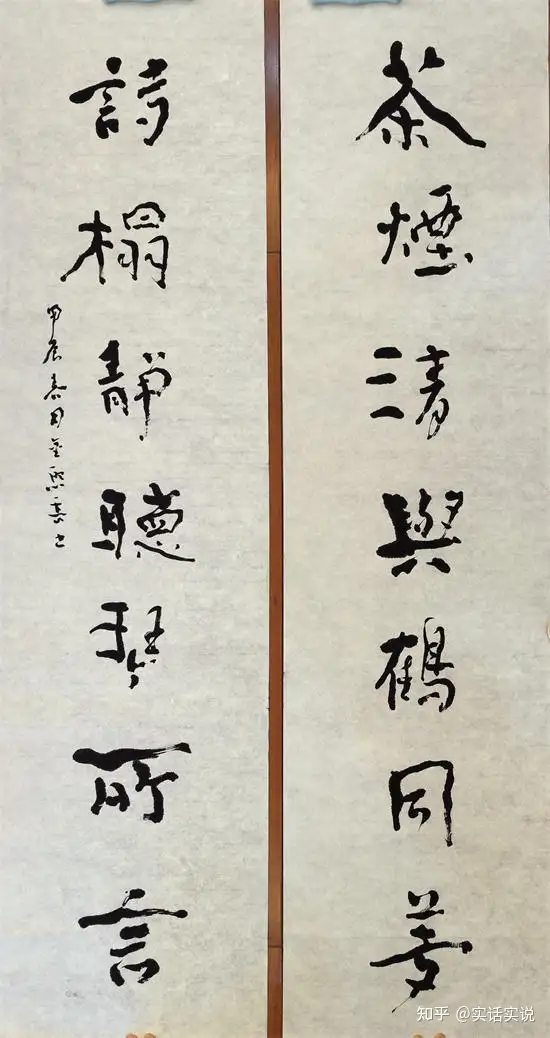 茶煙清與鶴同夢
詩榻靜聽琴所言
甲辰春月
知乎 @实话实说